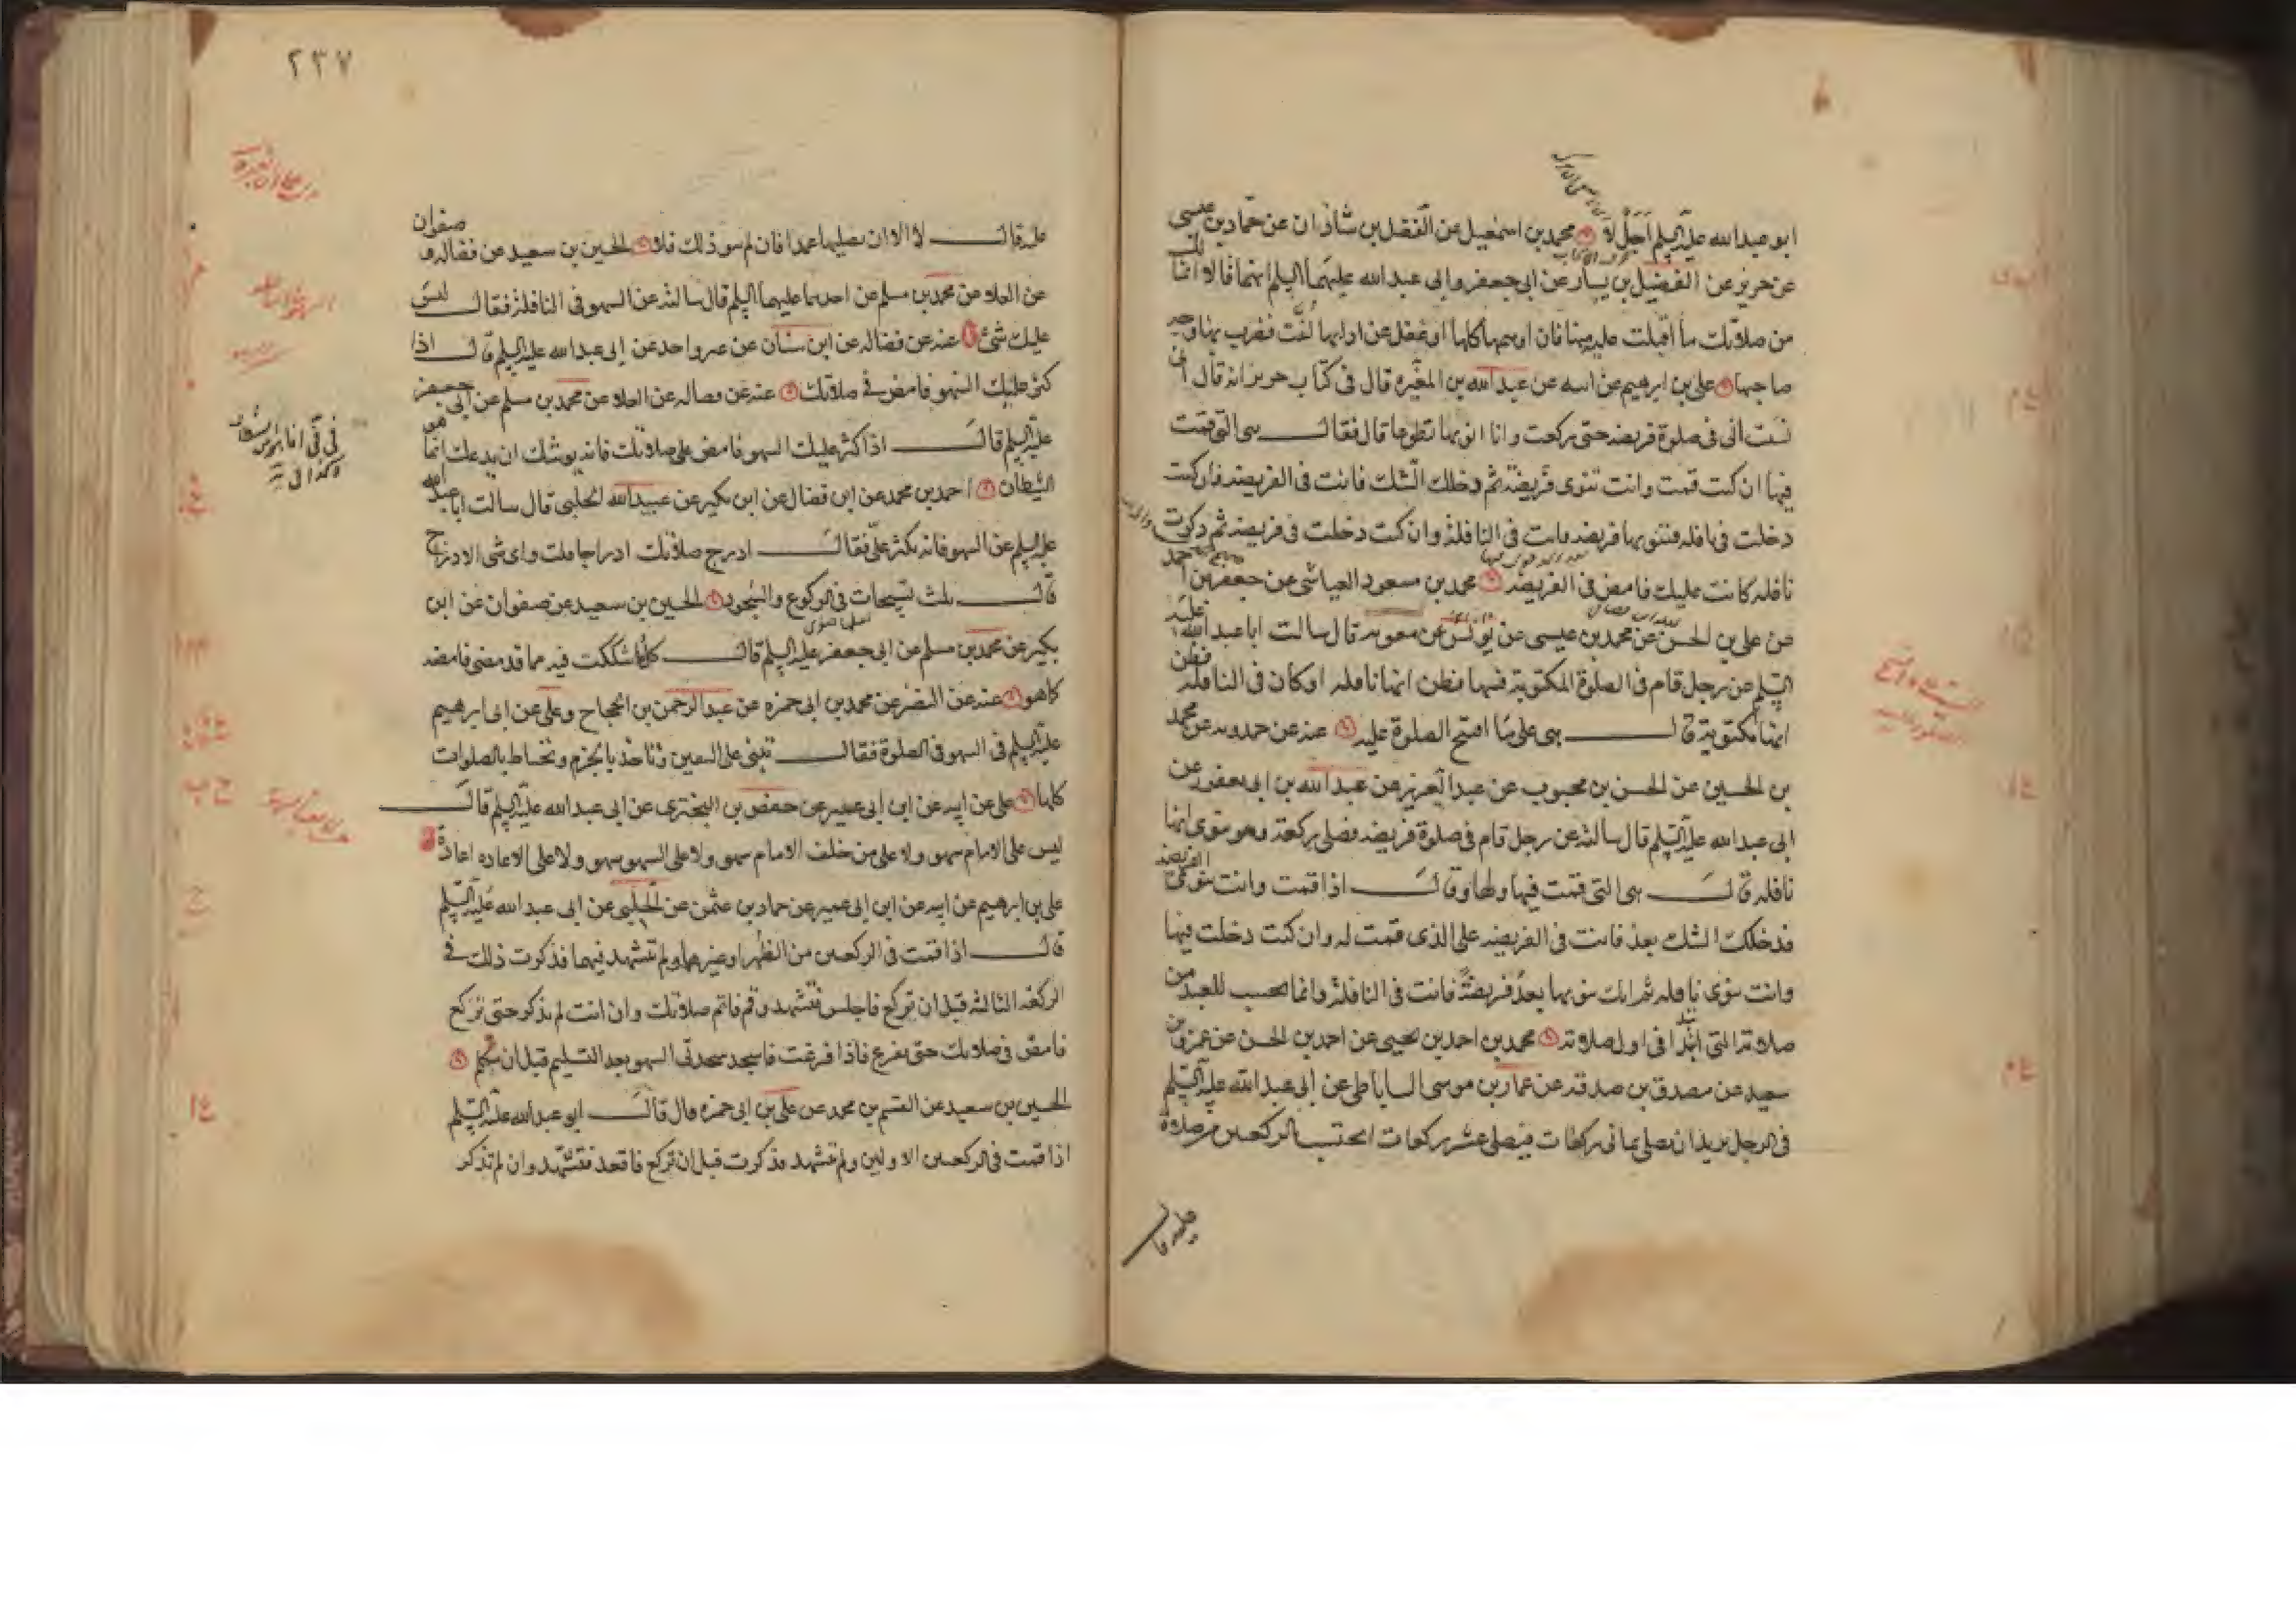 ابو عبد الله عليه السلم اجل لا محمد بن اسمعيل عن الفضل بن شاذان عن حماد بن عيسى
عن حريز عن الفضيل بن يسار عن ابى جعفر وابى عبد الله عليهما السلم انهما قالا انما لك
من صلاتك ما اقبلت عليه منها فان اوهمها كلها او غفل عن ادابها لفت فضرب بها وجه
صاحبها على بن ابرهيم عن ابيه عن عبد الله بن المغيره قال فى كتاب حريز انه قال انى
نسيت انى فى صلوة فريضه حتى ركعت وانا انويها تطوعا قال فقال هى التى قمت
فيها ان كنت قمت وانت تنوى فريضة ثم دخلك الشك فانت فى الفريضه وان كنت
دخلت فى نافله فنويها فريضه فانت فى النافلة وان كنت دخلت فى فريضه ثم ذكرت
نافله كانت عليك فامض فى الفريضه محمد بن مسعود العياشى عن جعفر بن احمد
عن على بن الحسن عن محمد بن عيسى عن يونس عن معويه قال سالت ابا عبد الله عليه
السلم عن رجل قام فى الصلوة المكتوبة فسها فظن انها نافله او كان فى النافله فظن
انها مكتوبة قال هى على ما افتتح الصلوة عليه عنه عن حمدويه عن محمد
بن الحسين عن الحسن بن محبوب عن عبد العزيز عن عبد الله بن ابى يعفور عن
ابى عبد الله عليه السلم قال سالته عن رجل قام فى صلوة فريضه فصلى ركعة وهو ينوى انها
نافله قال هى التى قمت فيها ولها وقال اذا قمت وانت تنوى الفريضه
فدخلك الشك بعد فانت فى الفريضه على الذى قمت له وان كنت دخلت فيها
وانت تنوى نافله ثم انك تنويها بعد فريضة فانت فى النافلة وانما يحسب للعبد من
صلاته التى ابتدا فى اول صلاته محمد بن احمد بن يحيى عن احمد بن الحسن عن عمرو بن
سعيد عن مصدق بن صدقه عن عمار بن موسى الساباطى عن ابى عبد الله عليه السلم
فى الرجل يريد ان يصلى ثمانى ركعات فيصلى عشر ركعات ايحتسب بالركعتين من صلاة
عليه قال
٢٣٧
عليه قال لا الا ان يصليها عمدا فان لم ينو ذلك فلا الحسين بن سعيد عن فضاله و صفوان
عن العلا عن محمد بن مسلم عن احدهما عليهما السلم قال سالته عن السهو فى النافلة فقال ليس
عليك شئ عنه عن فضاله عن ابن سنان عن غير واحد عن ابى عبد الله عليه السلم قال اذا
كثر عليك السهو فامض فى صلاتك عنه عن فضاله عن العلا عن محمد بن مسلم عن ابى جعفر
عليه السلم قال اذا كثر عليك السهو فامض على صلاتك فانه يوشك ان يدعك انما هو
الشيطان احمد بن محمد عن ابن فضال عن ابن بكير عن عبيد الله الحلبى قال سالت ابا عبد الله
عليه السلم عن السهو فانه يكثر على فقال ادرج صلاتك ادراجا قلت واى شى الادراج
قال ثلث تسبيحات فى الركوع والسجود الحسين بن سعيد عن صفوان عن ابن
بكير عن محمد بن مسلم عن ابى جعفر عليه السلم قال كلما شككت فيه مما قد مضى فامضه
كما هو عنه عن النضر عن محمد بن ابى حمزه عن عبد الرحمن بن الحجاج وعلى عن ابى ابرهيم
عليه السلم فى السهو فى الصلوة فقال تبنى على اليقين وتاخذ بالجزم وتحتاط بالصلوات
كلها على عن ابيه عن ابن ابى عمير عن حفص بن البخترى عن ابى عبد الله عليه السلم قال
ليس على الامام سهو ولا على من خلف الامام سهو ولا على السهو سهو ولا على الاعاده اعادة
على بن ابرهيم عن ابيه عن ابن ابى عمير عن حماد بن عثمن عن الحلبى عن ابى عبد الله عليه السلم
قال اذا قمت فى الركعتين من الظهر او غيرها ولم تتشهد فيهما فذكرت ذلك فى
الركعه الثالثه قبل ان تركع فاجلس فتشهد وقم فاتم صلاتك وان انت لم تذكر حتى تركع
فامض فى صلاتك حتى تفرغ فاذا فرغت فاسجد سجدتى السهو بعد التسليم قبل ان تتكلم
الحسين بن سعيد عن القسم بن محمد عن على بن ابى حمزه قال قال ابو عبد الله عليه السلم
اذا قمت فى الركعتين الاولتين ولم تتشهد فذكرت قبل ان تركع فاقعد فتشهد وان لم تذكر